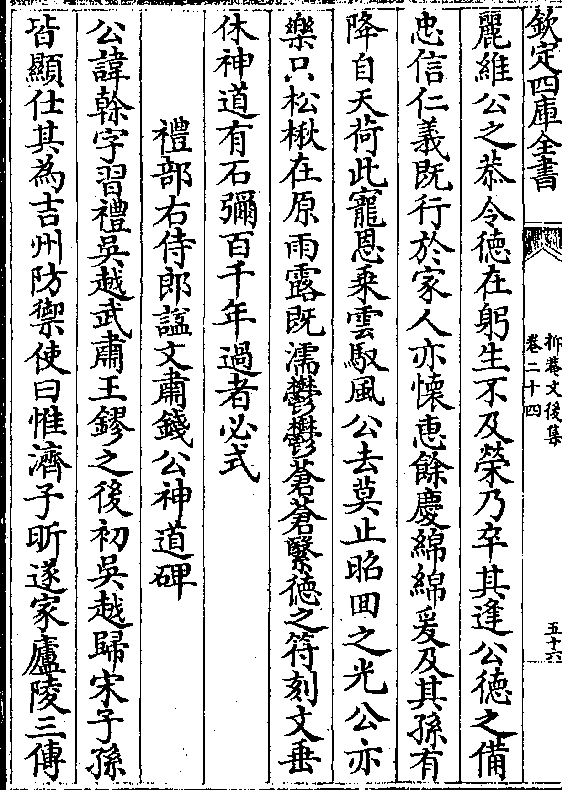 欽定四庫全書
抑菴文後集
卷二十四
五十六
麗維公之恭令德在躬生不及榮乃卒其逢公德之備
忠信仁義既行於家人亦懷恵餘慶綿綿爰及其孫有
降自天荷此寵恩乘雲馭風公去莫止昭回之光公亦
樂只松楸在原雨露既濡鬱鬱蒼蒼繄德之符刻文垂
休神道有石彌百千年過者必式
禮部右侍郎諡文肅錢公神道碑
公諱幹字習禮吳越武肅王鏐之後初吳越歸宋子孫
皆顯仕其為吉州防禦使曰惟濟子昕遂家廬陵三傳